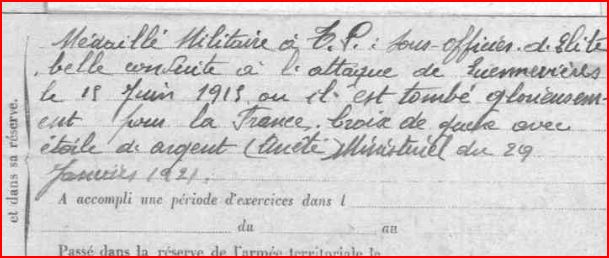 Médaillé Militaire à T.P. : Sous-officier d'élite
belle conduite à l'attaque de Quennevières
le 15 Juin 1915 ou il est tombé glorieusem-
ent pour la France. Croix de guerre avec
étoile de argent (Arrêté) Ministériel du 29
Janvier 1921.
et dans sa réserve.
A accompli une période d'exercices dans l
du au
Passé dans la réserve de l'armée territoriale le